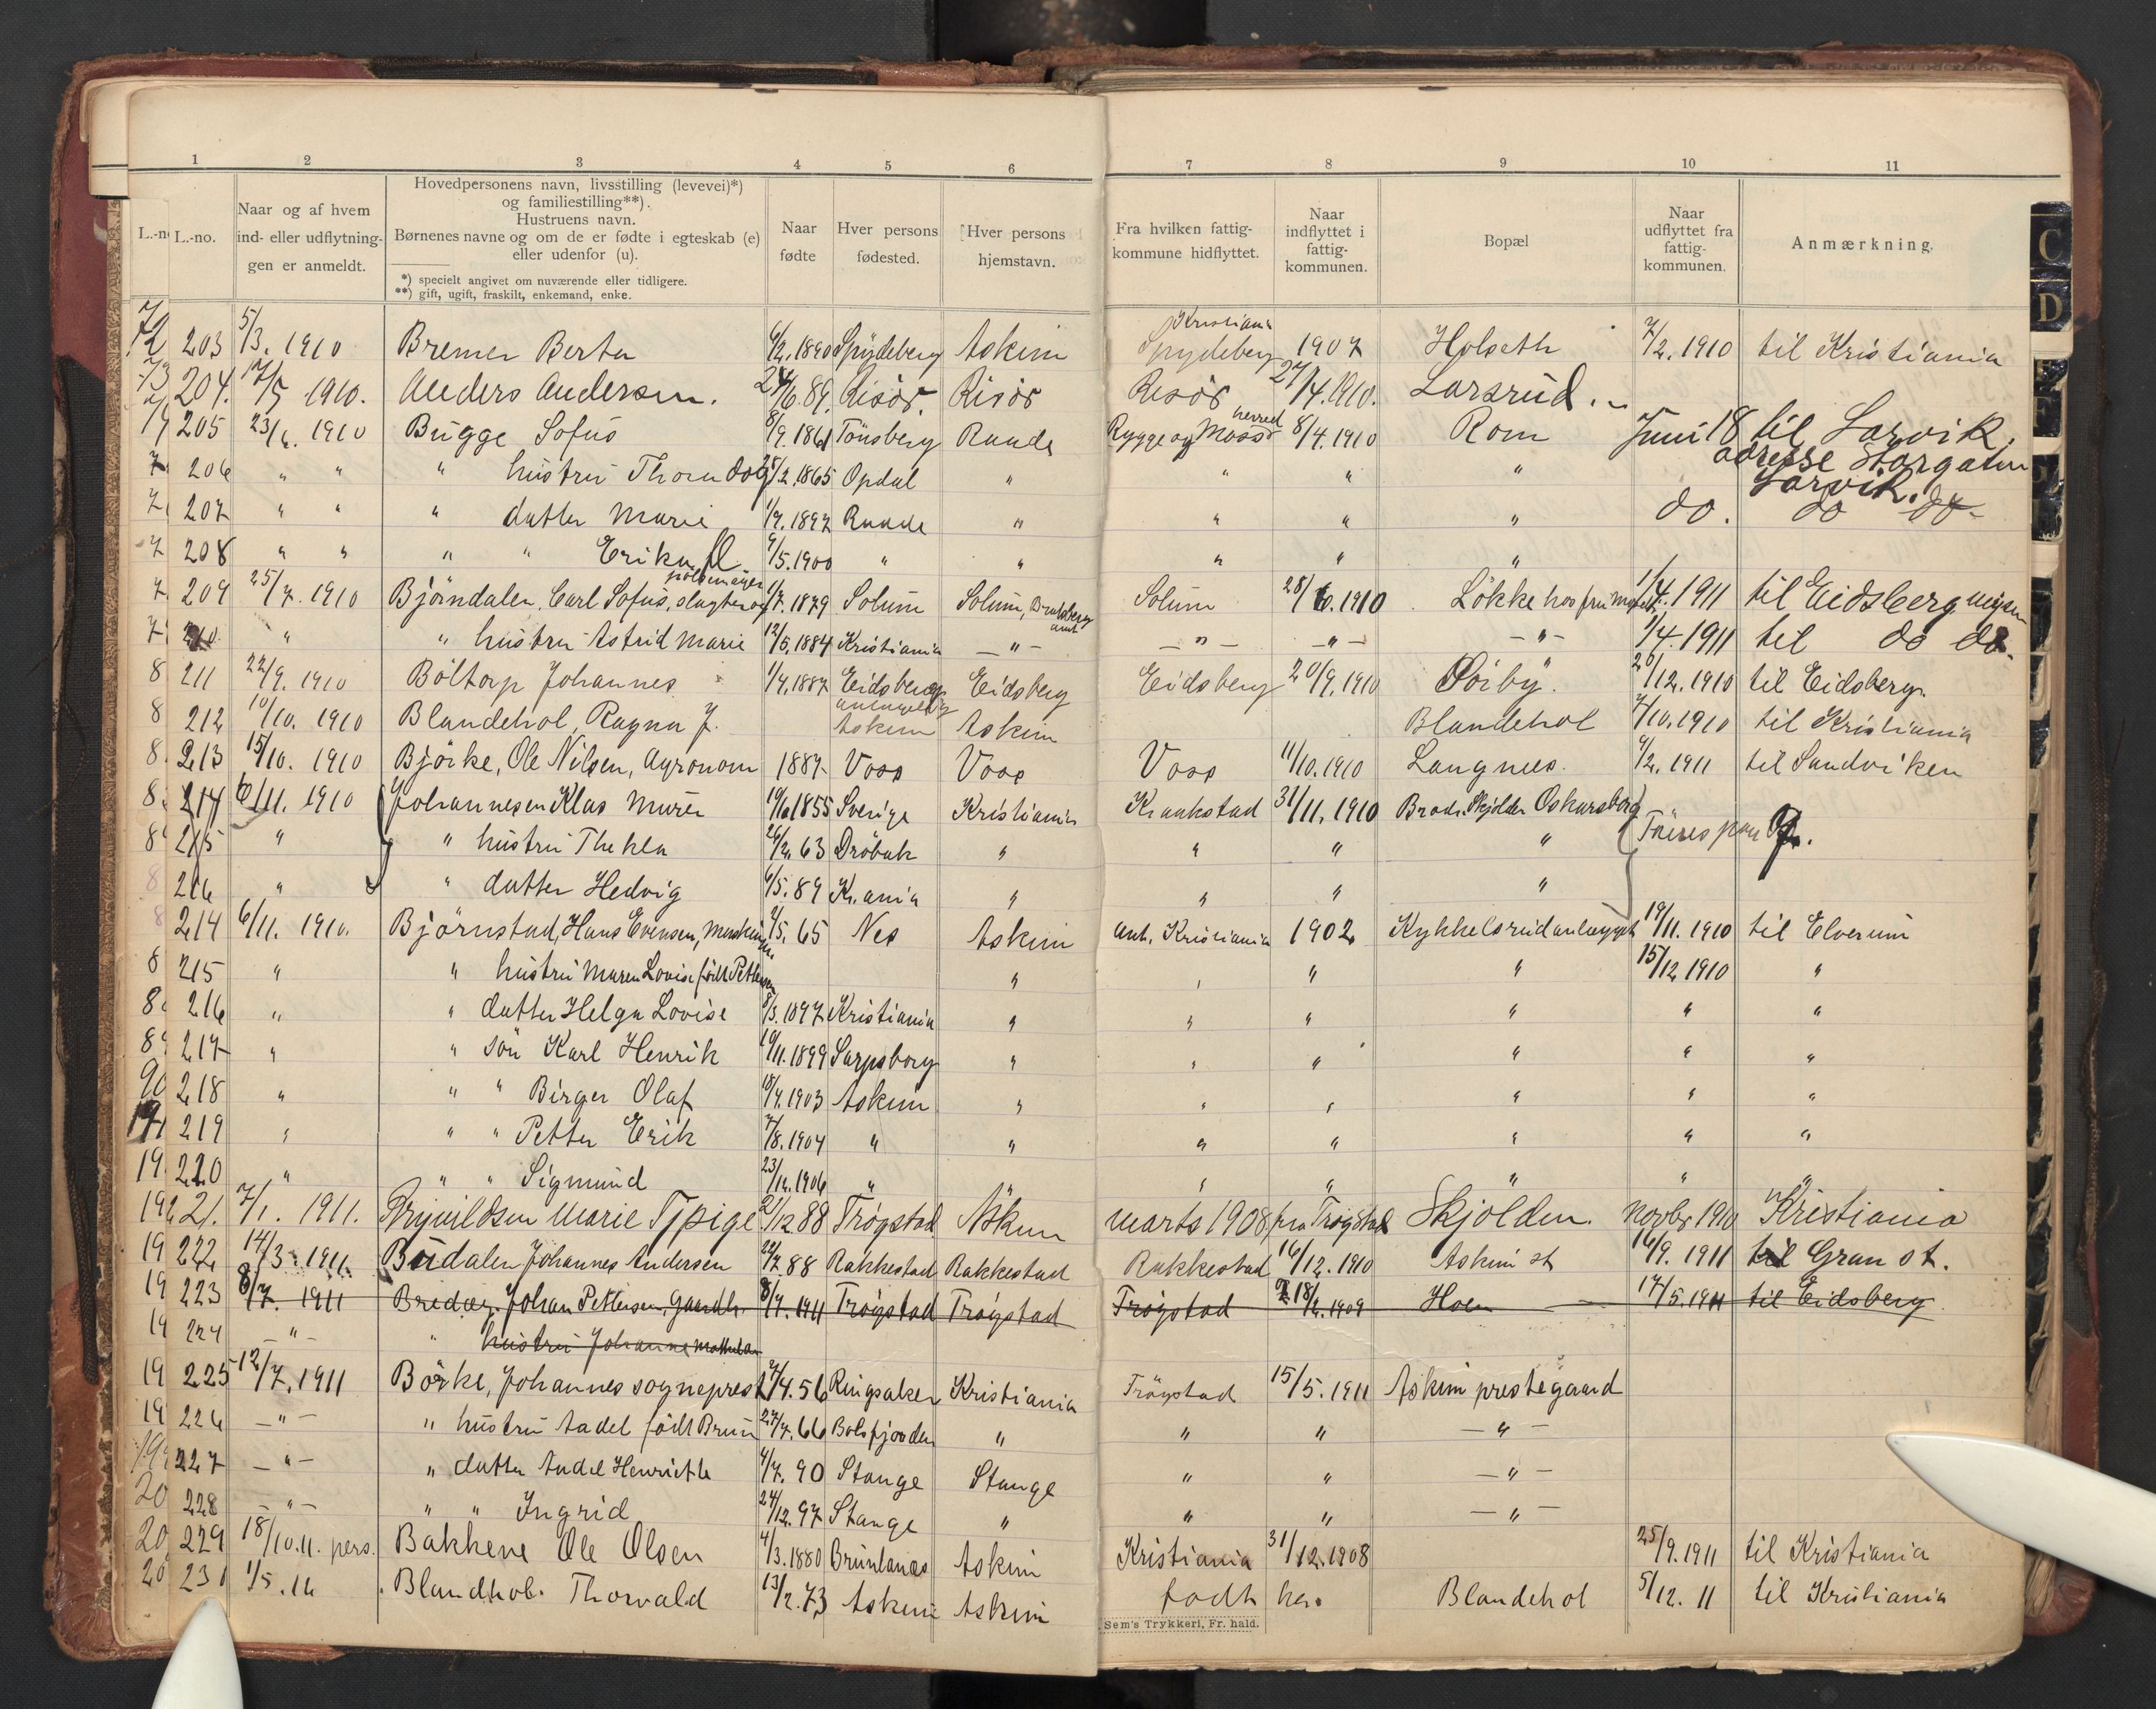 1 2 3 4 5 6 7 8 9 10 11
L.-no. Naar og af hvem ind- eller udflytningen er anmeldt. Hovedpersonens navn, livsstilling (levevei)*) og familiestilling**). Hustruens navn. Børnenes navne og om de er fødte i egteskab (e) eller udenfor (u). Naar fødte Hver persons fødested. Hver persons hjemstavn. Fra hvilken fattigkommune hidflyttet. Naar indflyttet i fattigkommunen. Bopæl Naar udflyttet fra fattigkommunen. Anmærkning.
*) specielt angivet om nuværende eller tidligere.
**) gift, ugift, fraskilt, enkemand, enke.
203 5/3. 1910 Bremer Berta 6/2. 1890 Spydeberg Askim Kristiania Spydeberg 1907 Holseth 7/2. 1910 til Kristiania
204. 17/5 1910. Anders Andersen. 24/6.89. Risör. Risör Risör 27/4.1910. Larsrud.
205 23/6. 1910 Bugge Sofus 8/9.1861 Tönsberg Raade Rygge og Moss herred 8/4.1910 Rom Juni 18 til Larvik. adresse Storgaten Larvik.
206 " " " hustru Thora 25/2.1865 Opdal " " " "
207 " " " datter Marie 1/9.1897 Raade " " " " do. do do
208 " " " " Erika 9/5.1900 " " " " "
209 25/7. 1910 Björndalen, Carl Sofus, slagter og pölsemager 1/7.1879 Solum Solum, Bratsberg amt Solum 28/6.1910 Lökke hos fru 1/4.1911 til Eidsberg
210 " " hustru Astrid Marie 12/5.1884 Kristiania — " — — " — — " — — " — 1/4.1911 til do do.
211 22/9. 1910 Böltorp Johannes 1/4.1887 Eidsberg Eidsberg Eidsberg 20/9.1910 Örby. 20/12.1910 til Eidsberg.
212 10/10. 1910 Blandehol, Ragna J. Askim Askim Blandehol 7/10.1910 til Kristiania
213 15/10. 1910 Björke, Ole Nilsen, Agronom 1887 Voss Voss Voss 11/10.1910 Langnes. 9/2. 1911 til Sandviken
214 6/11. 1910 Johannesen Klas Murer 19/6 1855 Sverige Kristiania Kraakstad 31/11.1910 Brads. Skjolden Oskarsberg
215 " " hustru Thekla 26/2.63 Dröbak " " " " Föres paa J.
216 " " datter Hedvig 6/5.89 Kr.ania " " " "
214 6/11. 1910. Björnstad, Hans Evensen, Maskinist 9/5.65 Nes Askim ant. Kristiania 1902 Kykkelsrudanlægget 19/11.1910 til Elverum
215 " " hustru Maren Lovise födt Pettersen " " " " 15/12 1910 "
216 " " datter Helga Lovise 8/3.1897 Kristiania " " " " " "
217 " " sön Karl Henrik 19/11.1899 Sarpsborg " " " " " "
218 " " " Birger Olaf 18/9.1903 Askim " " " " " "
219 " " " Petter Erik 7/8.1904 " " " " " " "
220 " " " Sigmund 23/12.1906 " " " " " "
221. 7/1. 1911. Marie Tjpige 21/12 88 Trøgstad Askim marts 1908 fra Trøgstad Skjolden. novbr 1910 Kristiania
222 14/3. 1911. Budalen Johannes Andersen 24/7.88 Rakkestad Rakkestad Rakkestad 16/12.1910 Askim st 16/9. 1911 til Gran st.
223 8/7. 1911 Bredeg. Johan Pettersen, Gaardb. 8/9.1911 Trögstad Trögstad Trögstad 18/2.1909 Hoen 17/5.1911 til Eidsberg
224 — " — " hustru Johanne Mathilde
225 12/7.1911 Börke, Johannes sogneprest 27/4.56 Ringsaker Kristiania Trögstad 15/5.1911 Askim prestegaard
226 — " — " hustru Aadel födt Bruun 27/7.66 Bolsfjorden " " " — " —
227 — " — " datter Aadel Henriette 4/7. 90 Stange Stange " " — " —
228 — " — " " Ingrid 24/12.97 Stange " " " — " —
229 18/10.11. pers. Bakkene Ole Olsen 4/3.1880 Brunlanæs Askim Kristiania 31/12.1908 25/9.1911 til Kristiania
230 1/5.12 Blandhol. Thorvald 13/2.73 Askim Askim født her. Blandehol 5/12. 11 til Kristiania
Sem's Trykkeri, Fr. hald.
C
D